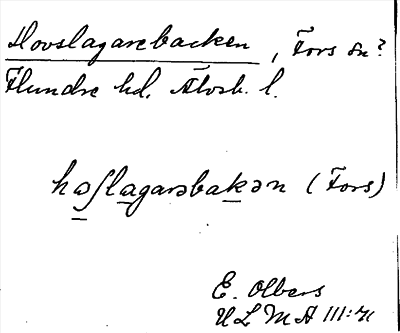 Hovslagarebacken, Fors sn?
Flundre hd. Älvsb. l.
hɷʃlagarəbakən (Fors)
E. Olbers
ULMA III: